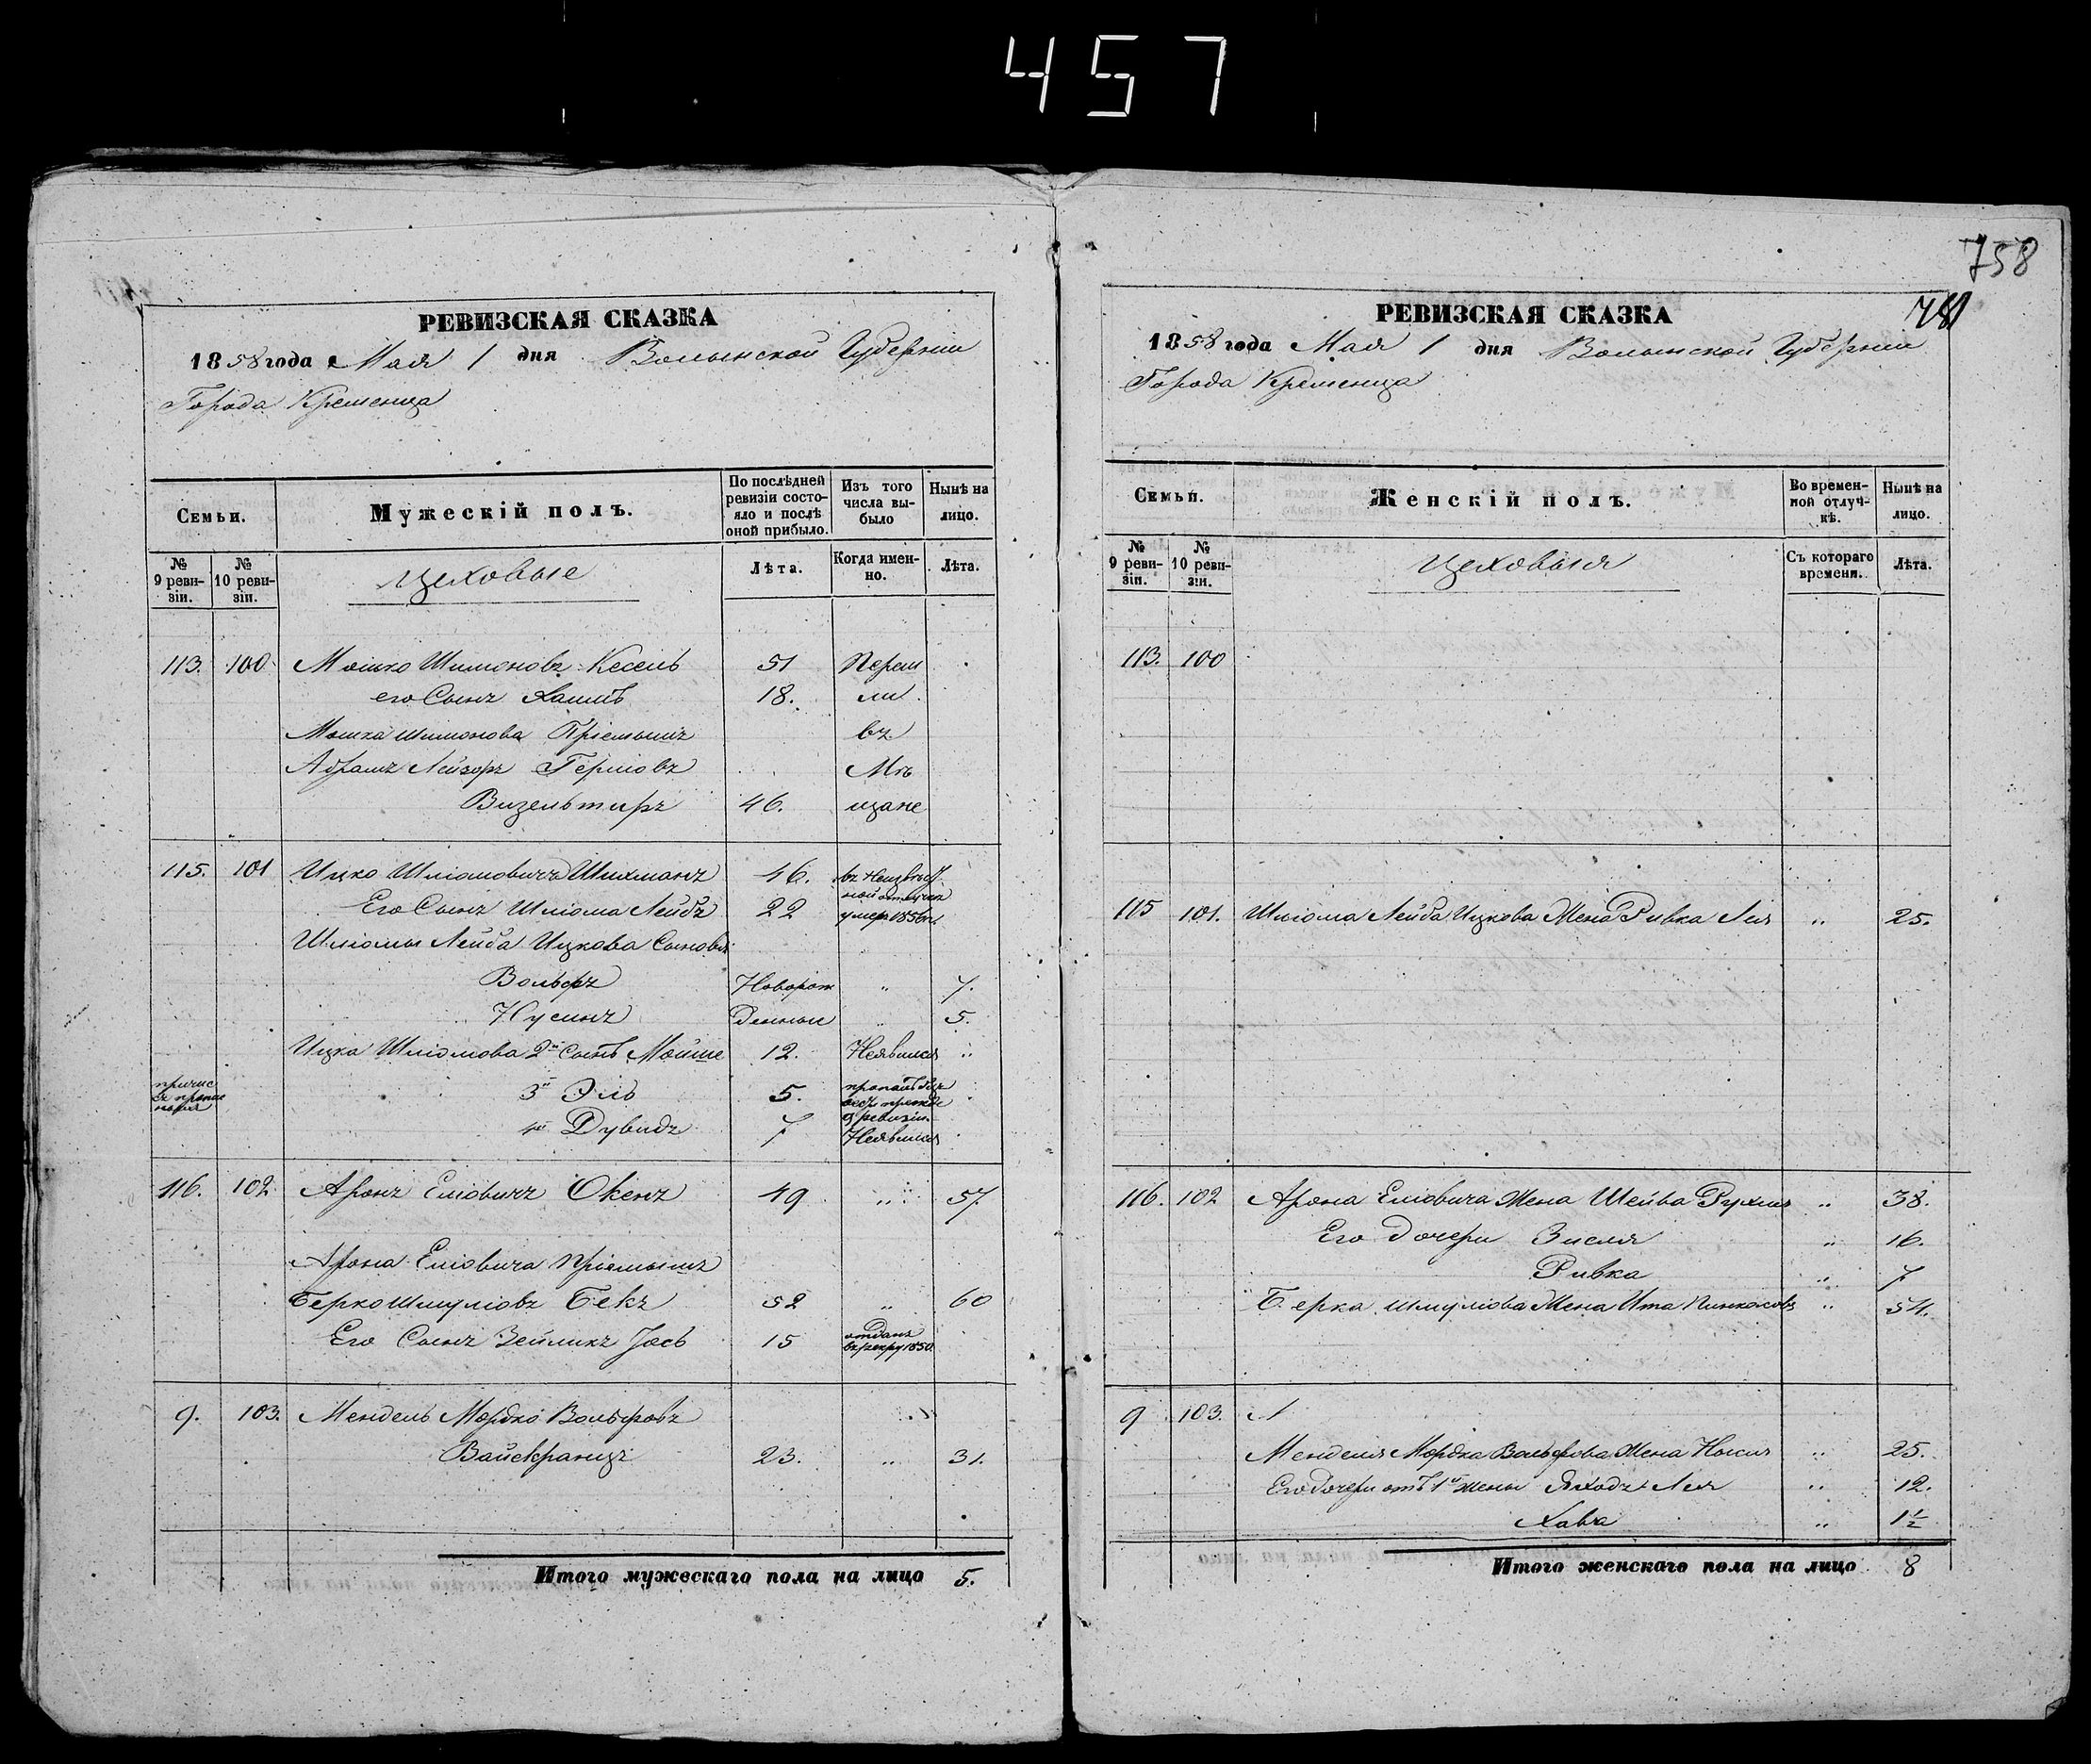 457
758
781
РЕВИЗСКАЯ СКАЗКА
1858 года Мая 1 дня Волынской Губерніи
Города Кременца
Семьи.
Мужескій полъ.
По послѣдней ревизіи состояло и послѣ оной прибыло.
Изъ того числа выбыло
Нынѣ на лицо.
№ 9 ревизіи.
№ 10 ревизіи.
Цеховые
Лѣта.
Когда именно.
Лѣта.
113. 100. Мошко Шимоновъ Кесель 51 Переш
его Сынъ Хаимъ 18. ли
Мошка Шимонова Пріемышъ въ
Абрамъ Лейзоръ Гершовъ Мѣ
Визельтиръ 46. щане
115. 101 Ицко Шліомовичъ Шихманъ 46. въ Неизвѣст
ной отлучкѣ
Его Сынъ Шліома Лейбъ 22 умер. 1856 г.
Шліомы Лейба Ицкова Сыновья
Вольфъ Новорож „ 7.
Нусинъ денные „ 5.
Ицка Шліомова 2й Сынъ Мойше 12. Неявился „
причис
3й Эль 5. пропалъ безъ
вѣсти прежде
9 ревизіи
4й Дувидъ 7 Неявился
116. 102 Аронъ Еліовичъ Окенъ 49 „ 57.
Арона Еліовича пріемышъ
Берко Шмуліовъ Бекъ 52 „ 60
Его Сынъ Зейликъ Іось 15 отданъ
въ рекру 1850.
9. 103. Мендель Мордко Вольфовъ
Вайскранцъ 23. „ 31.
Итого мужескаго пола на лицо 5.
РЕВИЗСКАЯ СКАЗКА
1858 года Мая 1 дня Волынской Губерніи
Города Кременца
Семьи.
Женскій полъ.
Во временной отлучкѣ.
Нынѣ на лицо.
№ 9 ревизіи.
№ 10 ревизіи.
Цеховыя
Съ котораго времени.
Лѣта.
113. 100
115 101. Шліома Лейба Ицкова Жена Ривка Лея „ 25.
116. 102 Арона Еліовича Жена Шейва Рухля „ 38.
Его Дочери Зисля „ 16.
Ривка „ 7
Берка Шмуліова Жена Ита Пинкасовъ „ 54.
9 103.
Менделя Мордка Вольфова Жена Нысия „ 25.
Его Дочери отъ 1й жены Лея „ 12.
Хава „ 1½
Итого женскаго пола на лицо 8